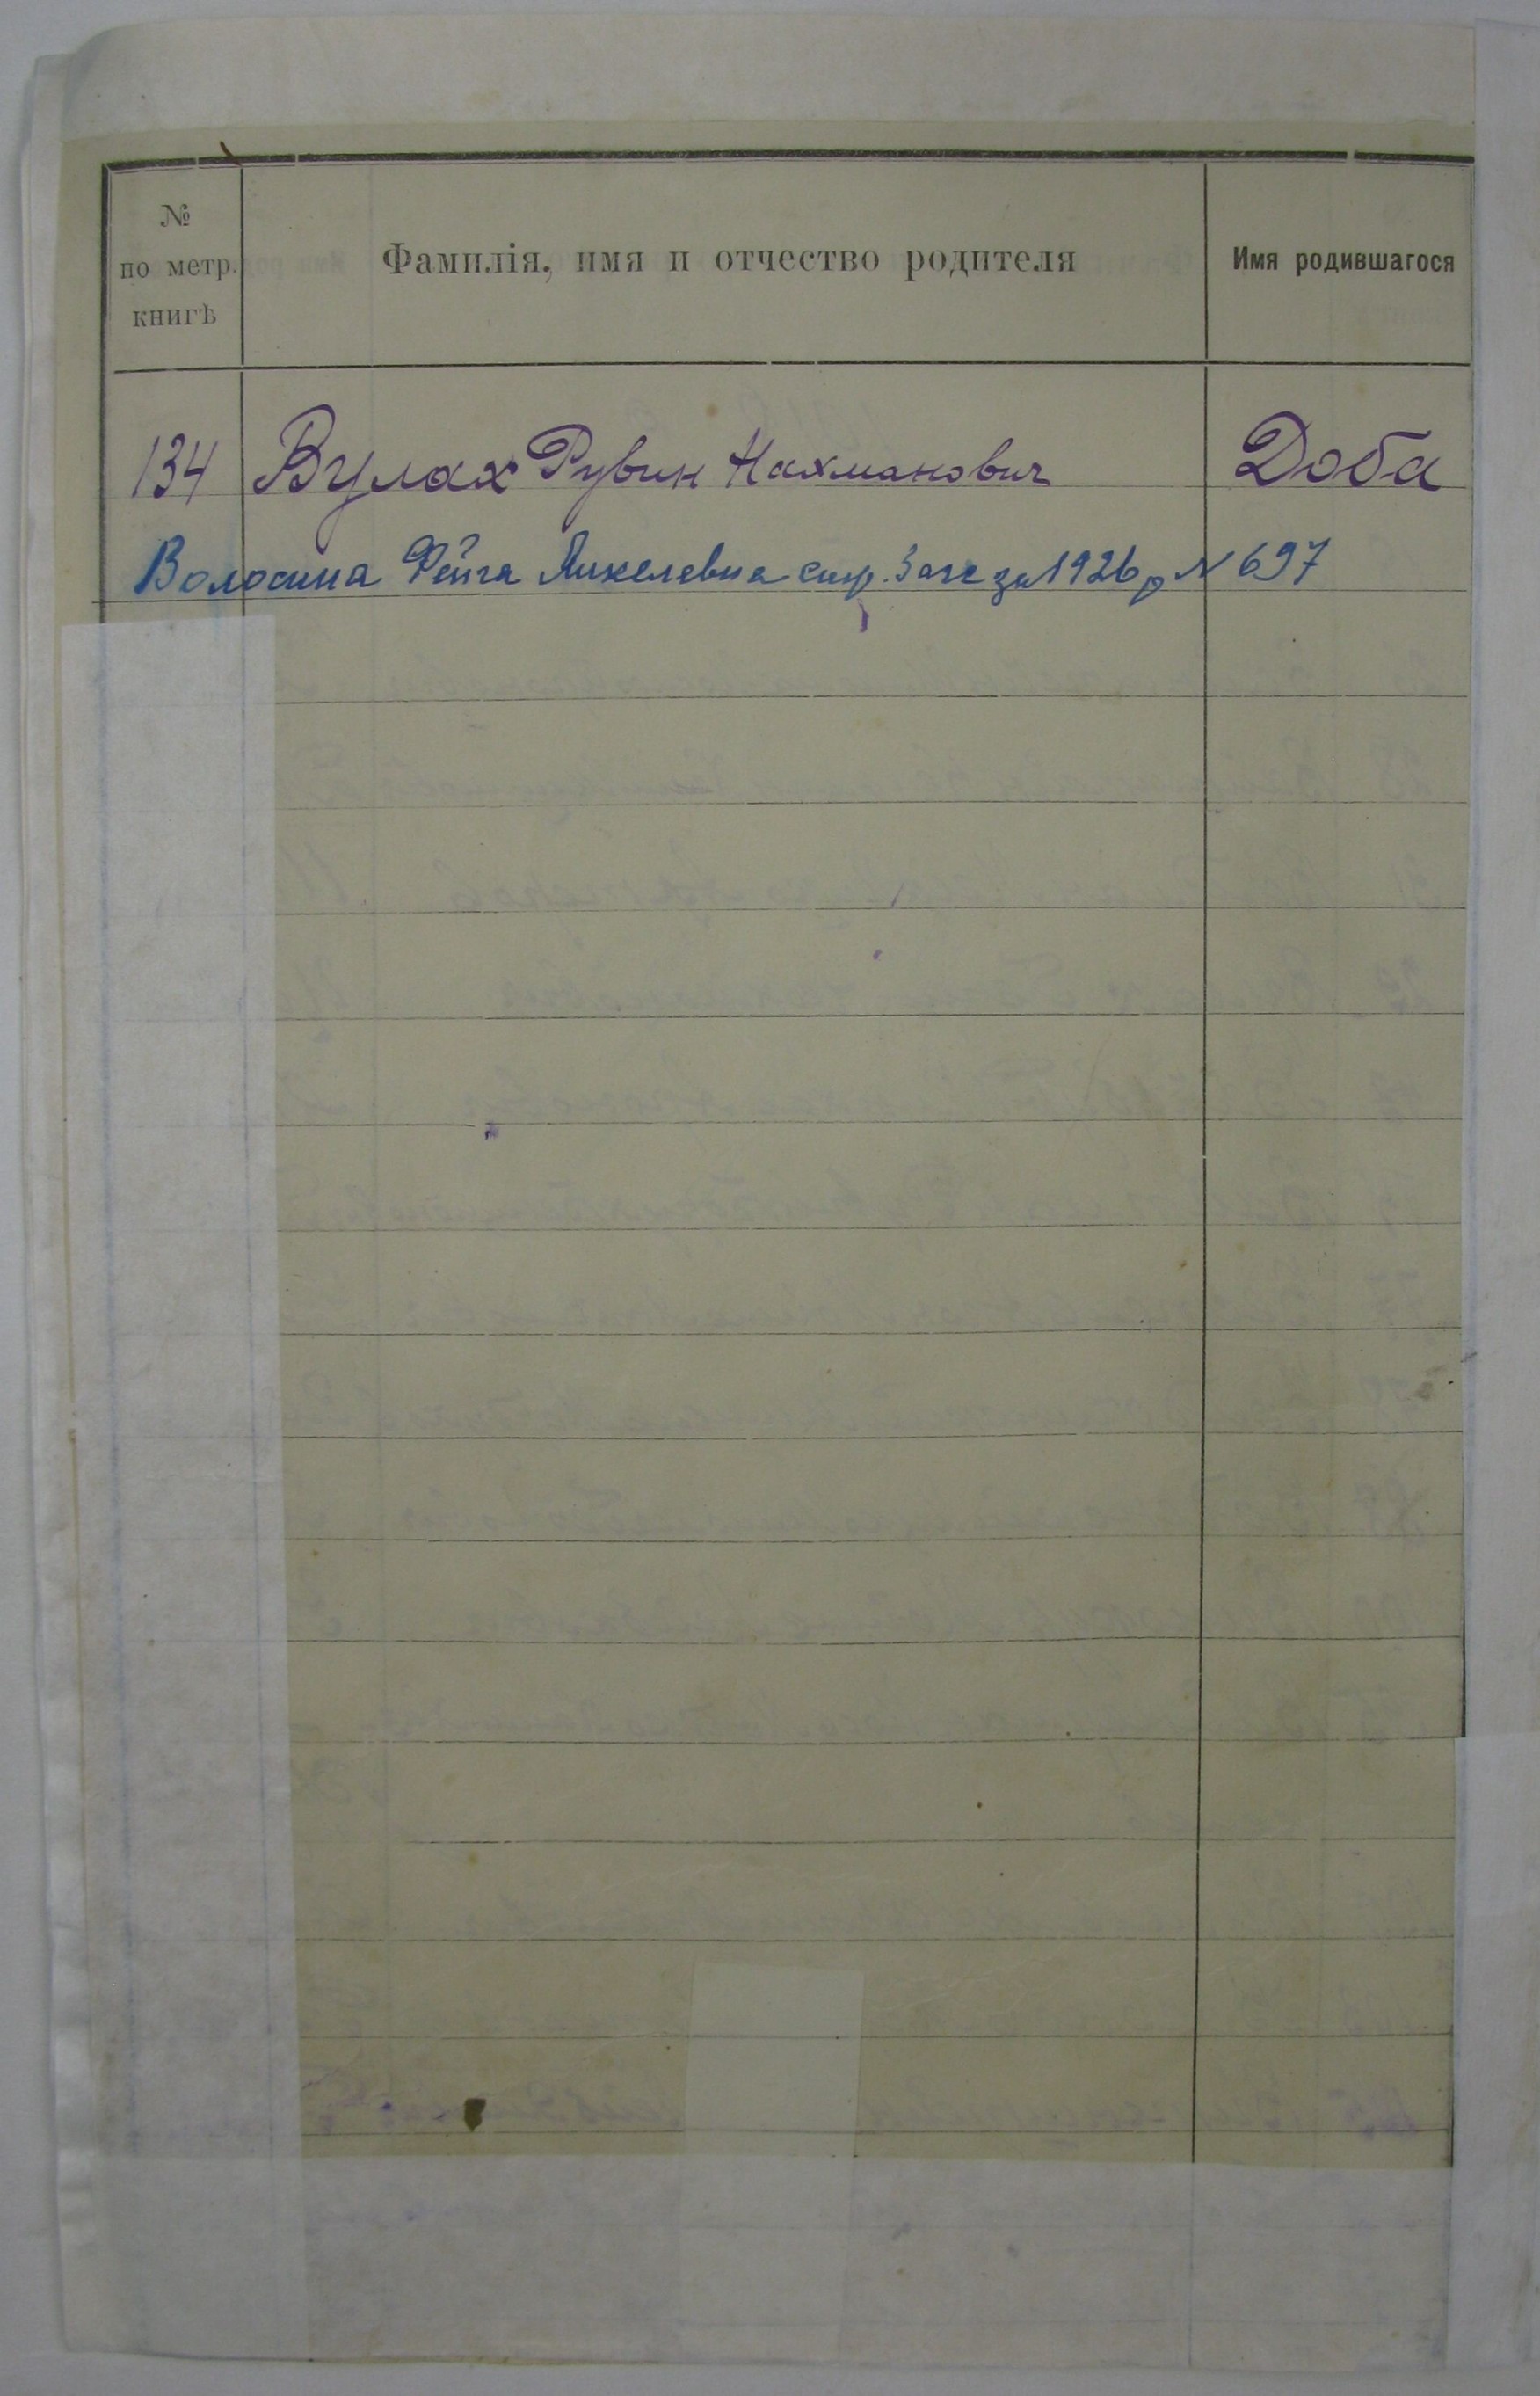 № по метр. книгѣ
Фамилія, имя и отчество родителя
Имя родившагося
134 Вулах Рувин Нахманович Доба
Волосина Фейга Янкелевна за 1926 р № 697